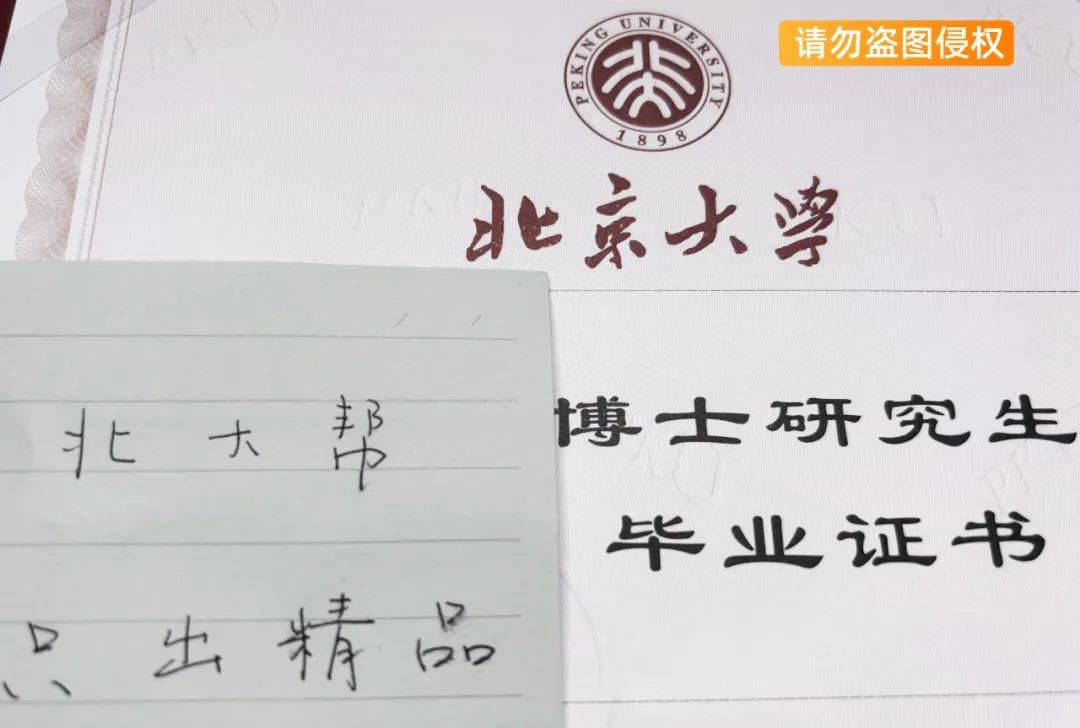 请勿盗图侵权
PEKING UNIVERSITY
1898
北京大学
博士研究生
毕业证书
北大帮
只出精品